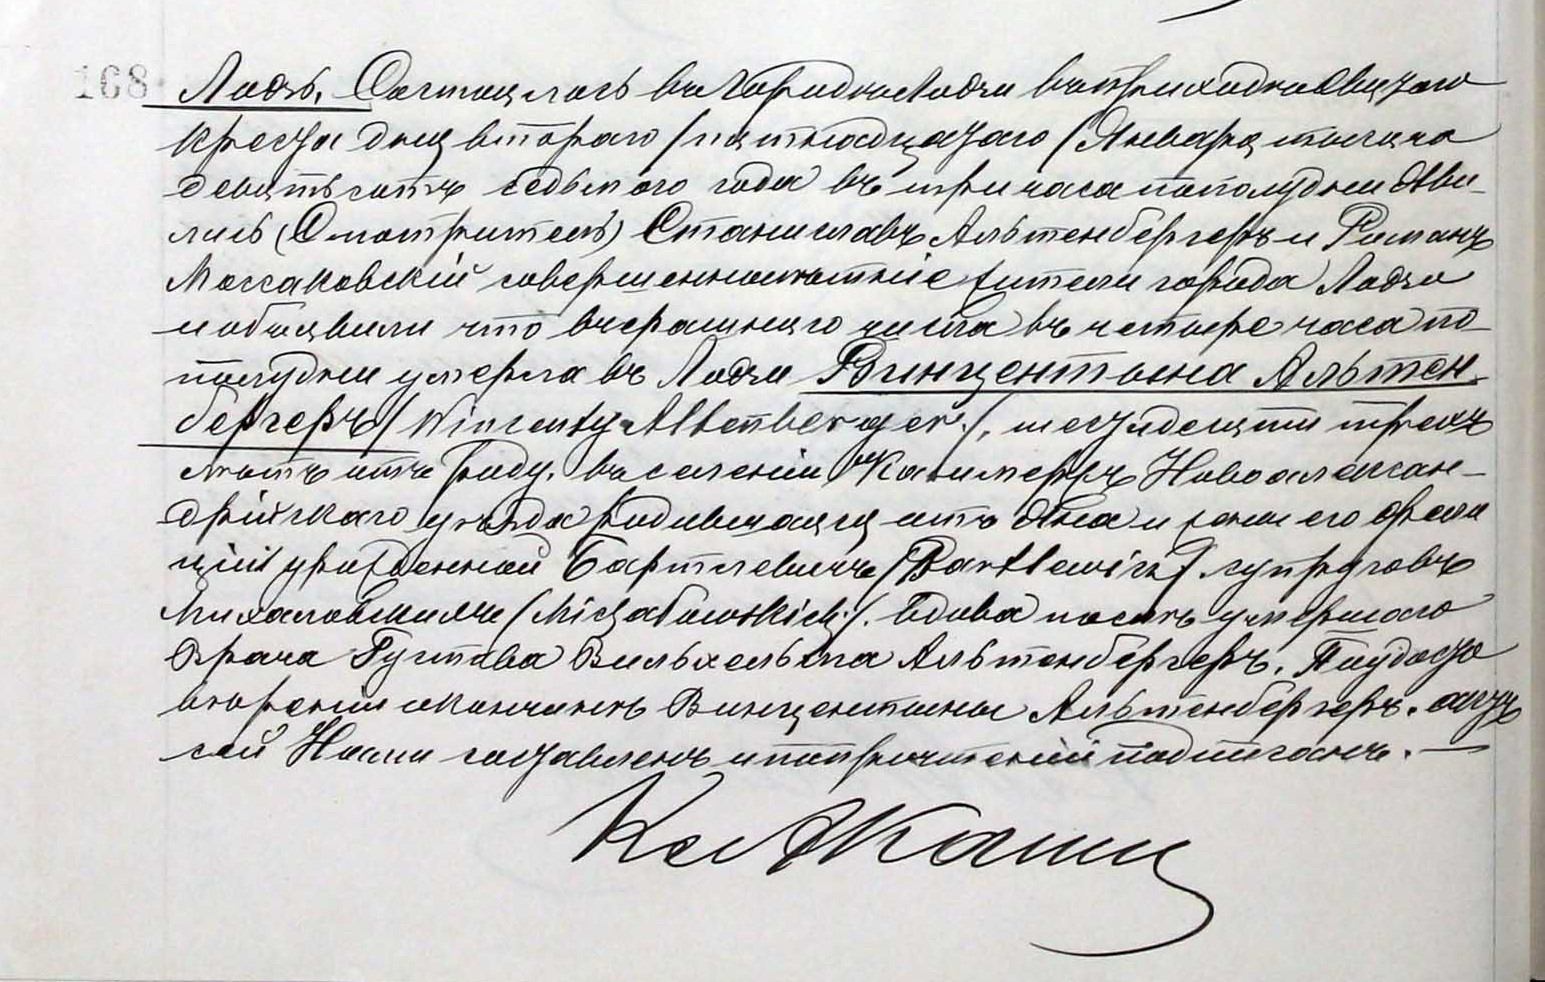 168
Лодзь. Состоялось въ городѣ Лодзи въ приходѣ Святого
Креста дня второго /пятнадцатаго/ Января тысяча
девятьсотъ седьмого года въ три часа пополудни Яви-
лись (Смотритель) Станиславъ Альтенбергеръ и Романъ
Моссаковскій совершеннолѣтніе жители города Лодзи
и объявили что вчерашняго числа въ четыре часа по-
полудни умерла въ Лодзи Винцентына Альтен-
бергеръ /Wincenty Altenberger/, шестидесяти трехъ
лѣтъ отъ роду, въ селеніи Казимержъ Новоалексан-
дрійскаго уѣзда родившаяся отъ Яна и жены его
урожденной Бартлевичъ /Bartlewicz/ супруговъ
Михаловскихъ /Michałowskich/. Вдова послѣ умершаго
Врача Густава Вильхельма Альтенбергеръ. По удосто
вѣреніи о кончинѣ Винцентыны Альтенбергеръ. актъ
сей Нами составленъ и по прочтеніи подписанъ. —